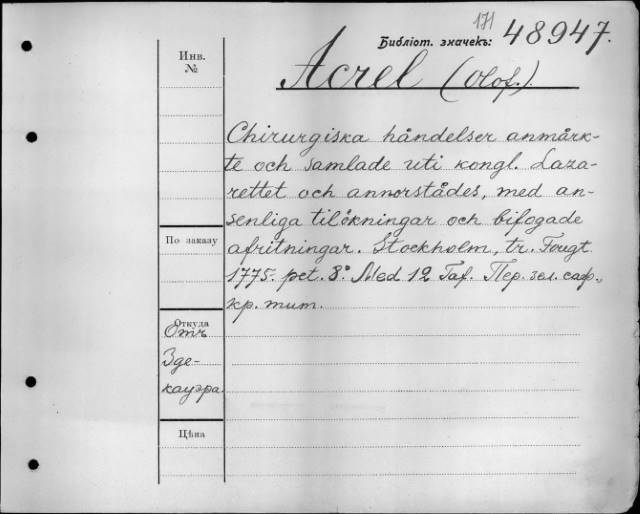 171
Библіот. значекъ: 48947.
Инв.
№
Acrel (Olof.)
Chirurgiska håndelser anmårk-
te och samlade uti kongl. Laza-
rettet och annorstådes, med an-
senliga tilökningar och bifogade
afritningar. Stockholm, tr. Fougt
1775. pet. 8° Med 12 Taf. Пер. зел. саф.,
кр. тит.
По заказу
Откуда
Отъ
Зде-
кауэра
Цѣна